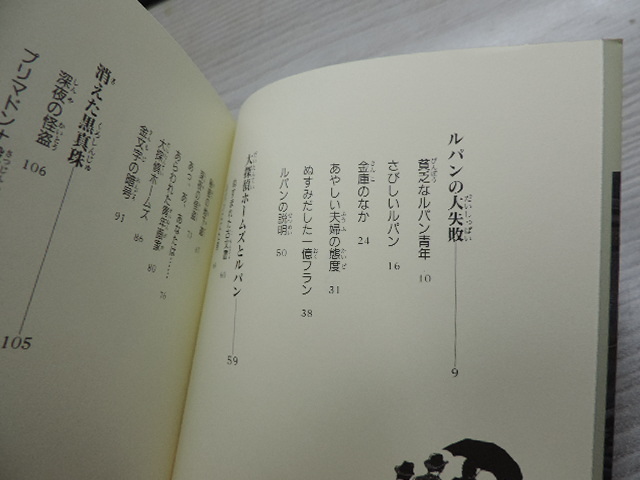 ルパンの大失敗 9
貧乏なルパン青年 10
さびしいルパン 16
金庫のなか 24
あやしい夫婦の態度 31
ぬすみだした一億フラン 38
ルパンの説明 50
大探偵ホームズとルパン 59
あっ、あなたは……
あらわれた青年画家 80
大探偵ホームズ 86
金文字の暗号 93
消えた黒真珠 105
深夜の怪盗 106
プリマドンナ